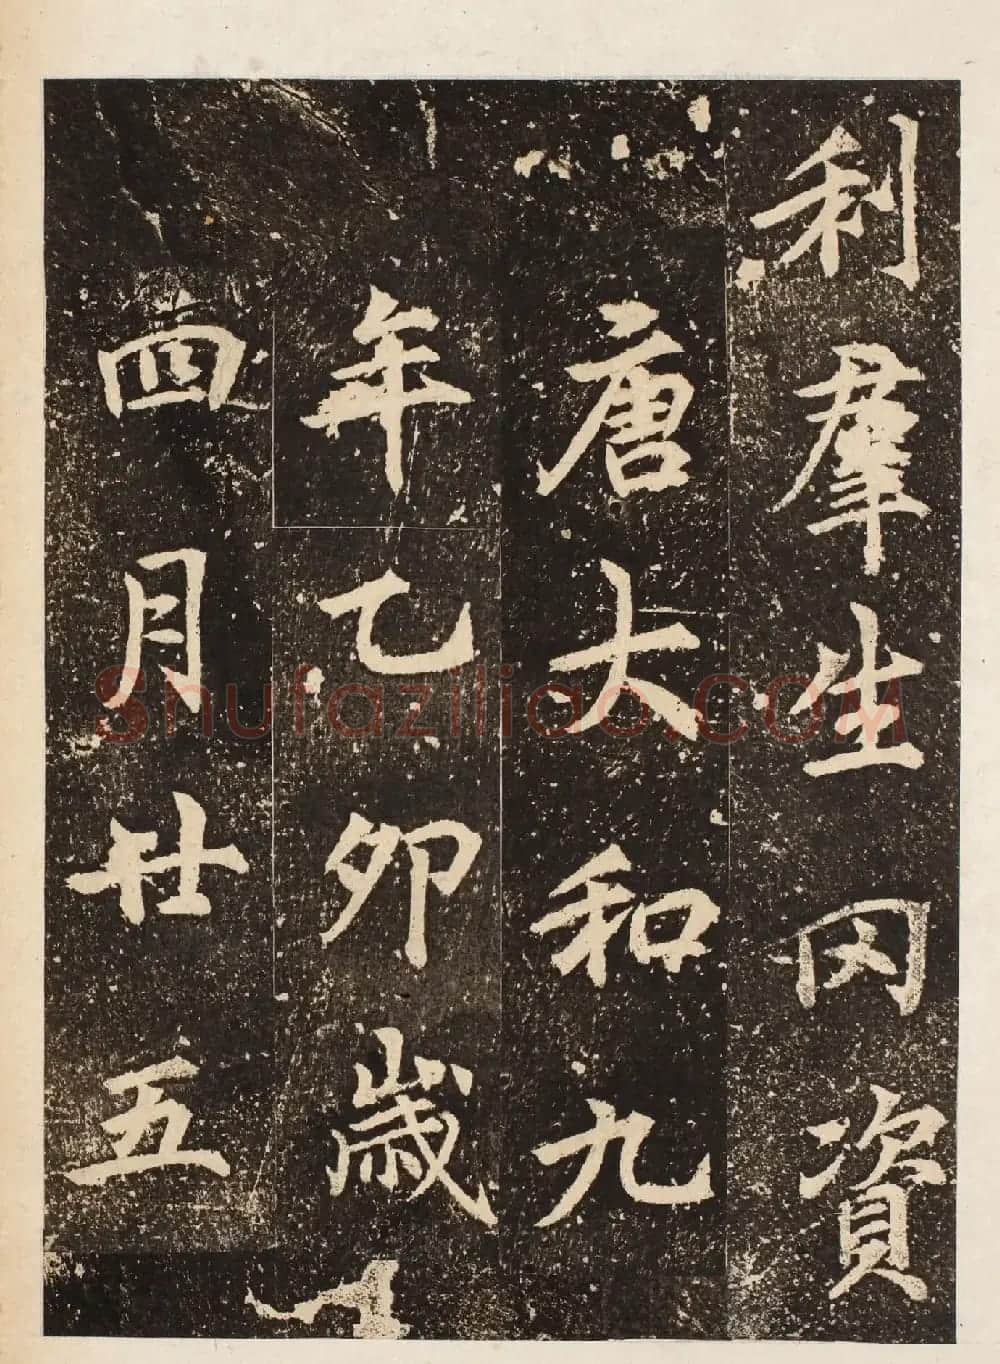 利羣生因資
唐大和九
年乙卯歲
四月廿五
Shufaziliao.COM